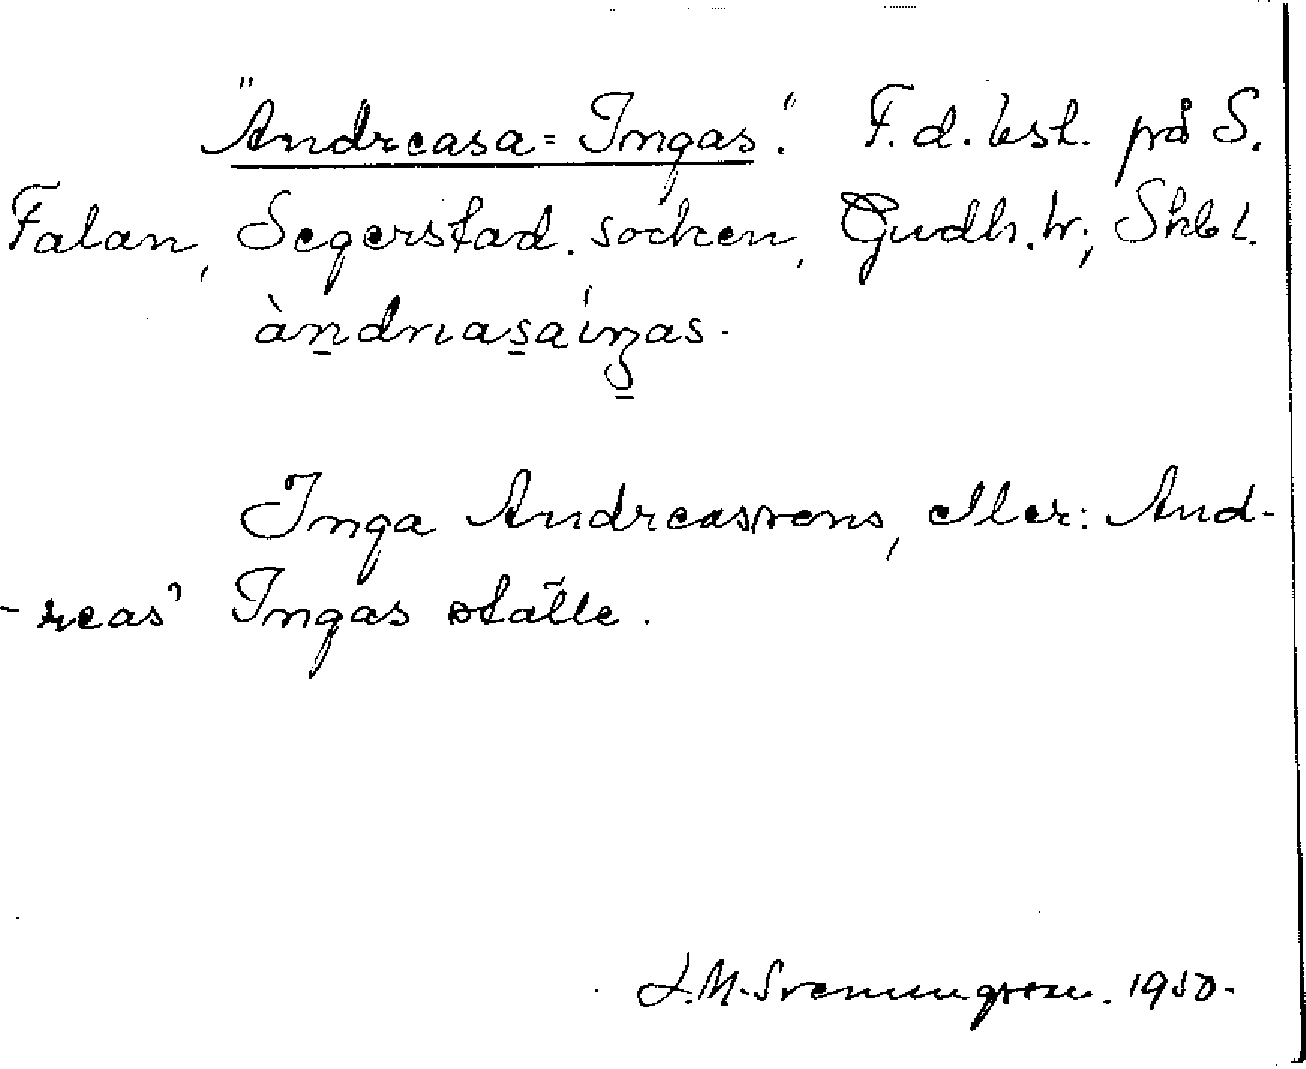 "Andreasa=Ingas". F.d. bst. på S.
Falan, Segerstad. socken, Gudh. hr; Skbl.
àndrıasaíŋas.
Inga Andreassons, eller: And-
-reas' Ingas ställe.
L.M. Svenungsson. 1950.